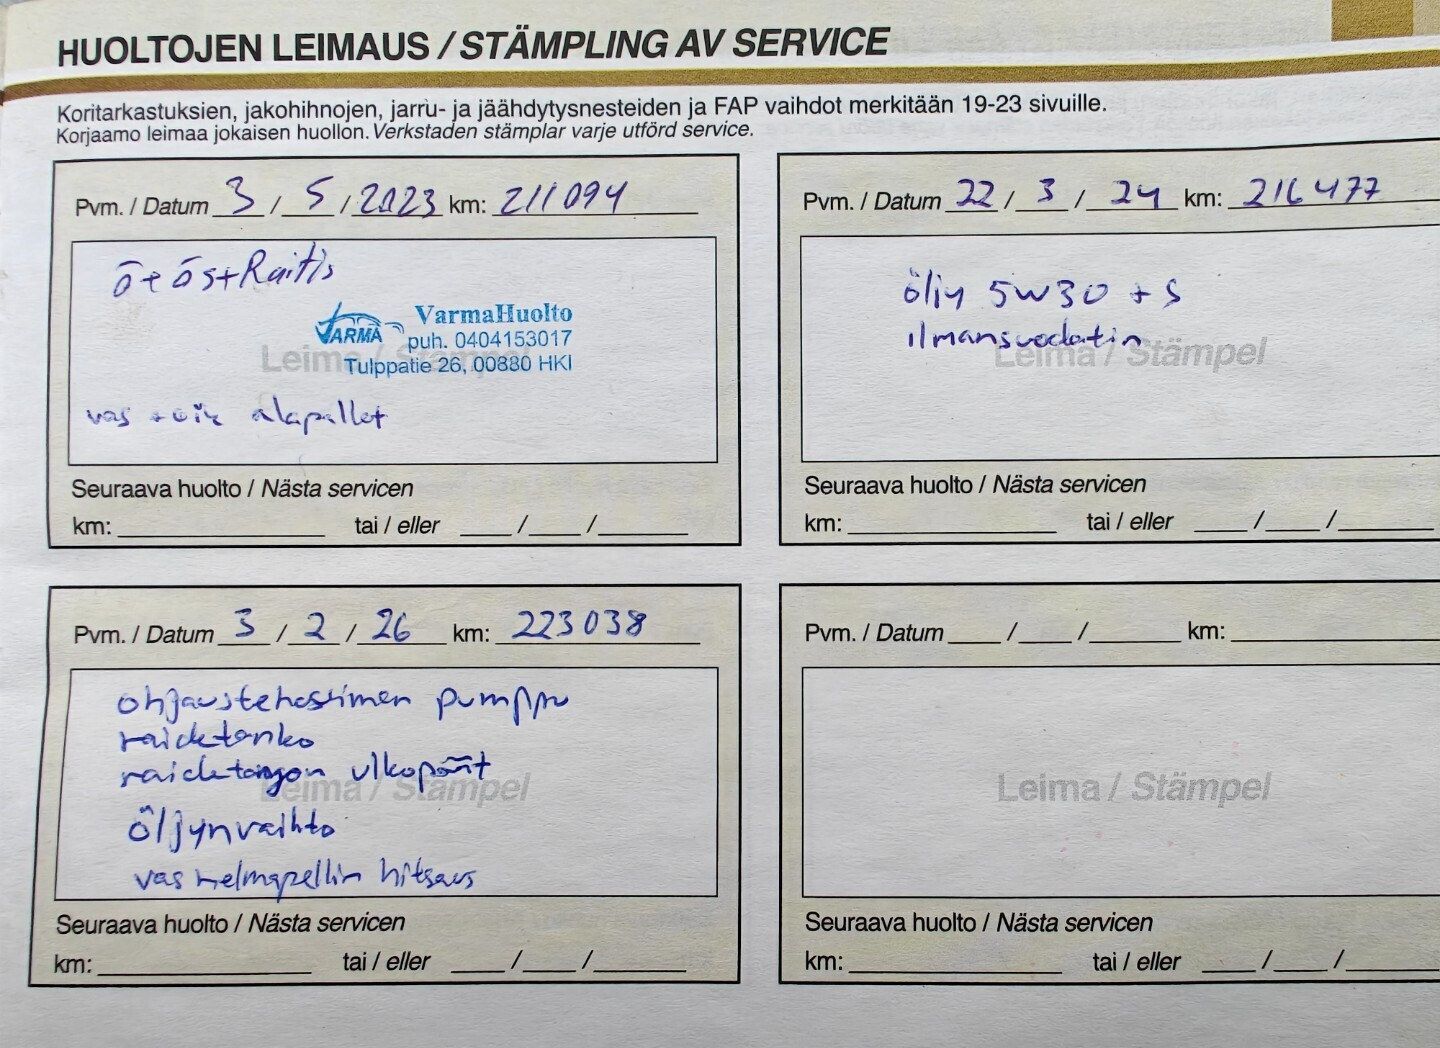 HUOLTOJEN LEIMAUS / STÄMPLING AV SERVICE
Koritarkastuksien, jakohihnojen, jarru- ja jäähdytysnesteiden ja FAP vaihdot merkitään 19-23 sivuille.
Korjaamo leimaa jokaisen huollon. Verkstaden stämplar varje utförd service.
Pvm. / Datum 3 / 5 / 2023 km: 211094
ö + ös + Raitis
VARMA VarmaHuolto
puh. 0404153017
Tulppatie 26, 00880 HKI
Leima / Stämpel
vas + oik alapallot
Seuraava huolto / Nästa servicen
km: tai / eller / /
Pvm. / Datum 22 / 3 / 24 km: 216477
öljy 5W30 + S
ilmansuodatin
Leima / Stämpel
Seuraava huolto / Nästa servicen
km: tai / eller / /
Pvm. / Datum 3 / 2 / 26 km: 223038
ohjaustehostimen pumppu
raidetanko
raidetangon ulkopäät
Leima / Stämpel
öljynvaihto
vas helmapellin hitsaus
Seuraava huolto / Nästa servicen
km: tai / eller / /
Pvm. / Datum / / km:
Leima / Stämpel
Seuraava huolto / Nästa servicen
km: tai / eller / /